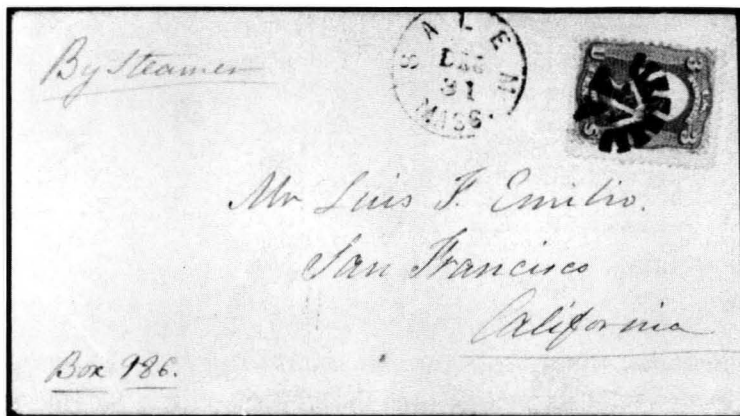 By Steamer
SALEM
DEC
31
MASS.
U
3
3
3
Mr. Luis F. Emilio.
San Francisco
California
Box 986.